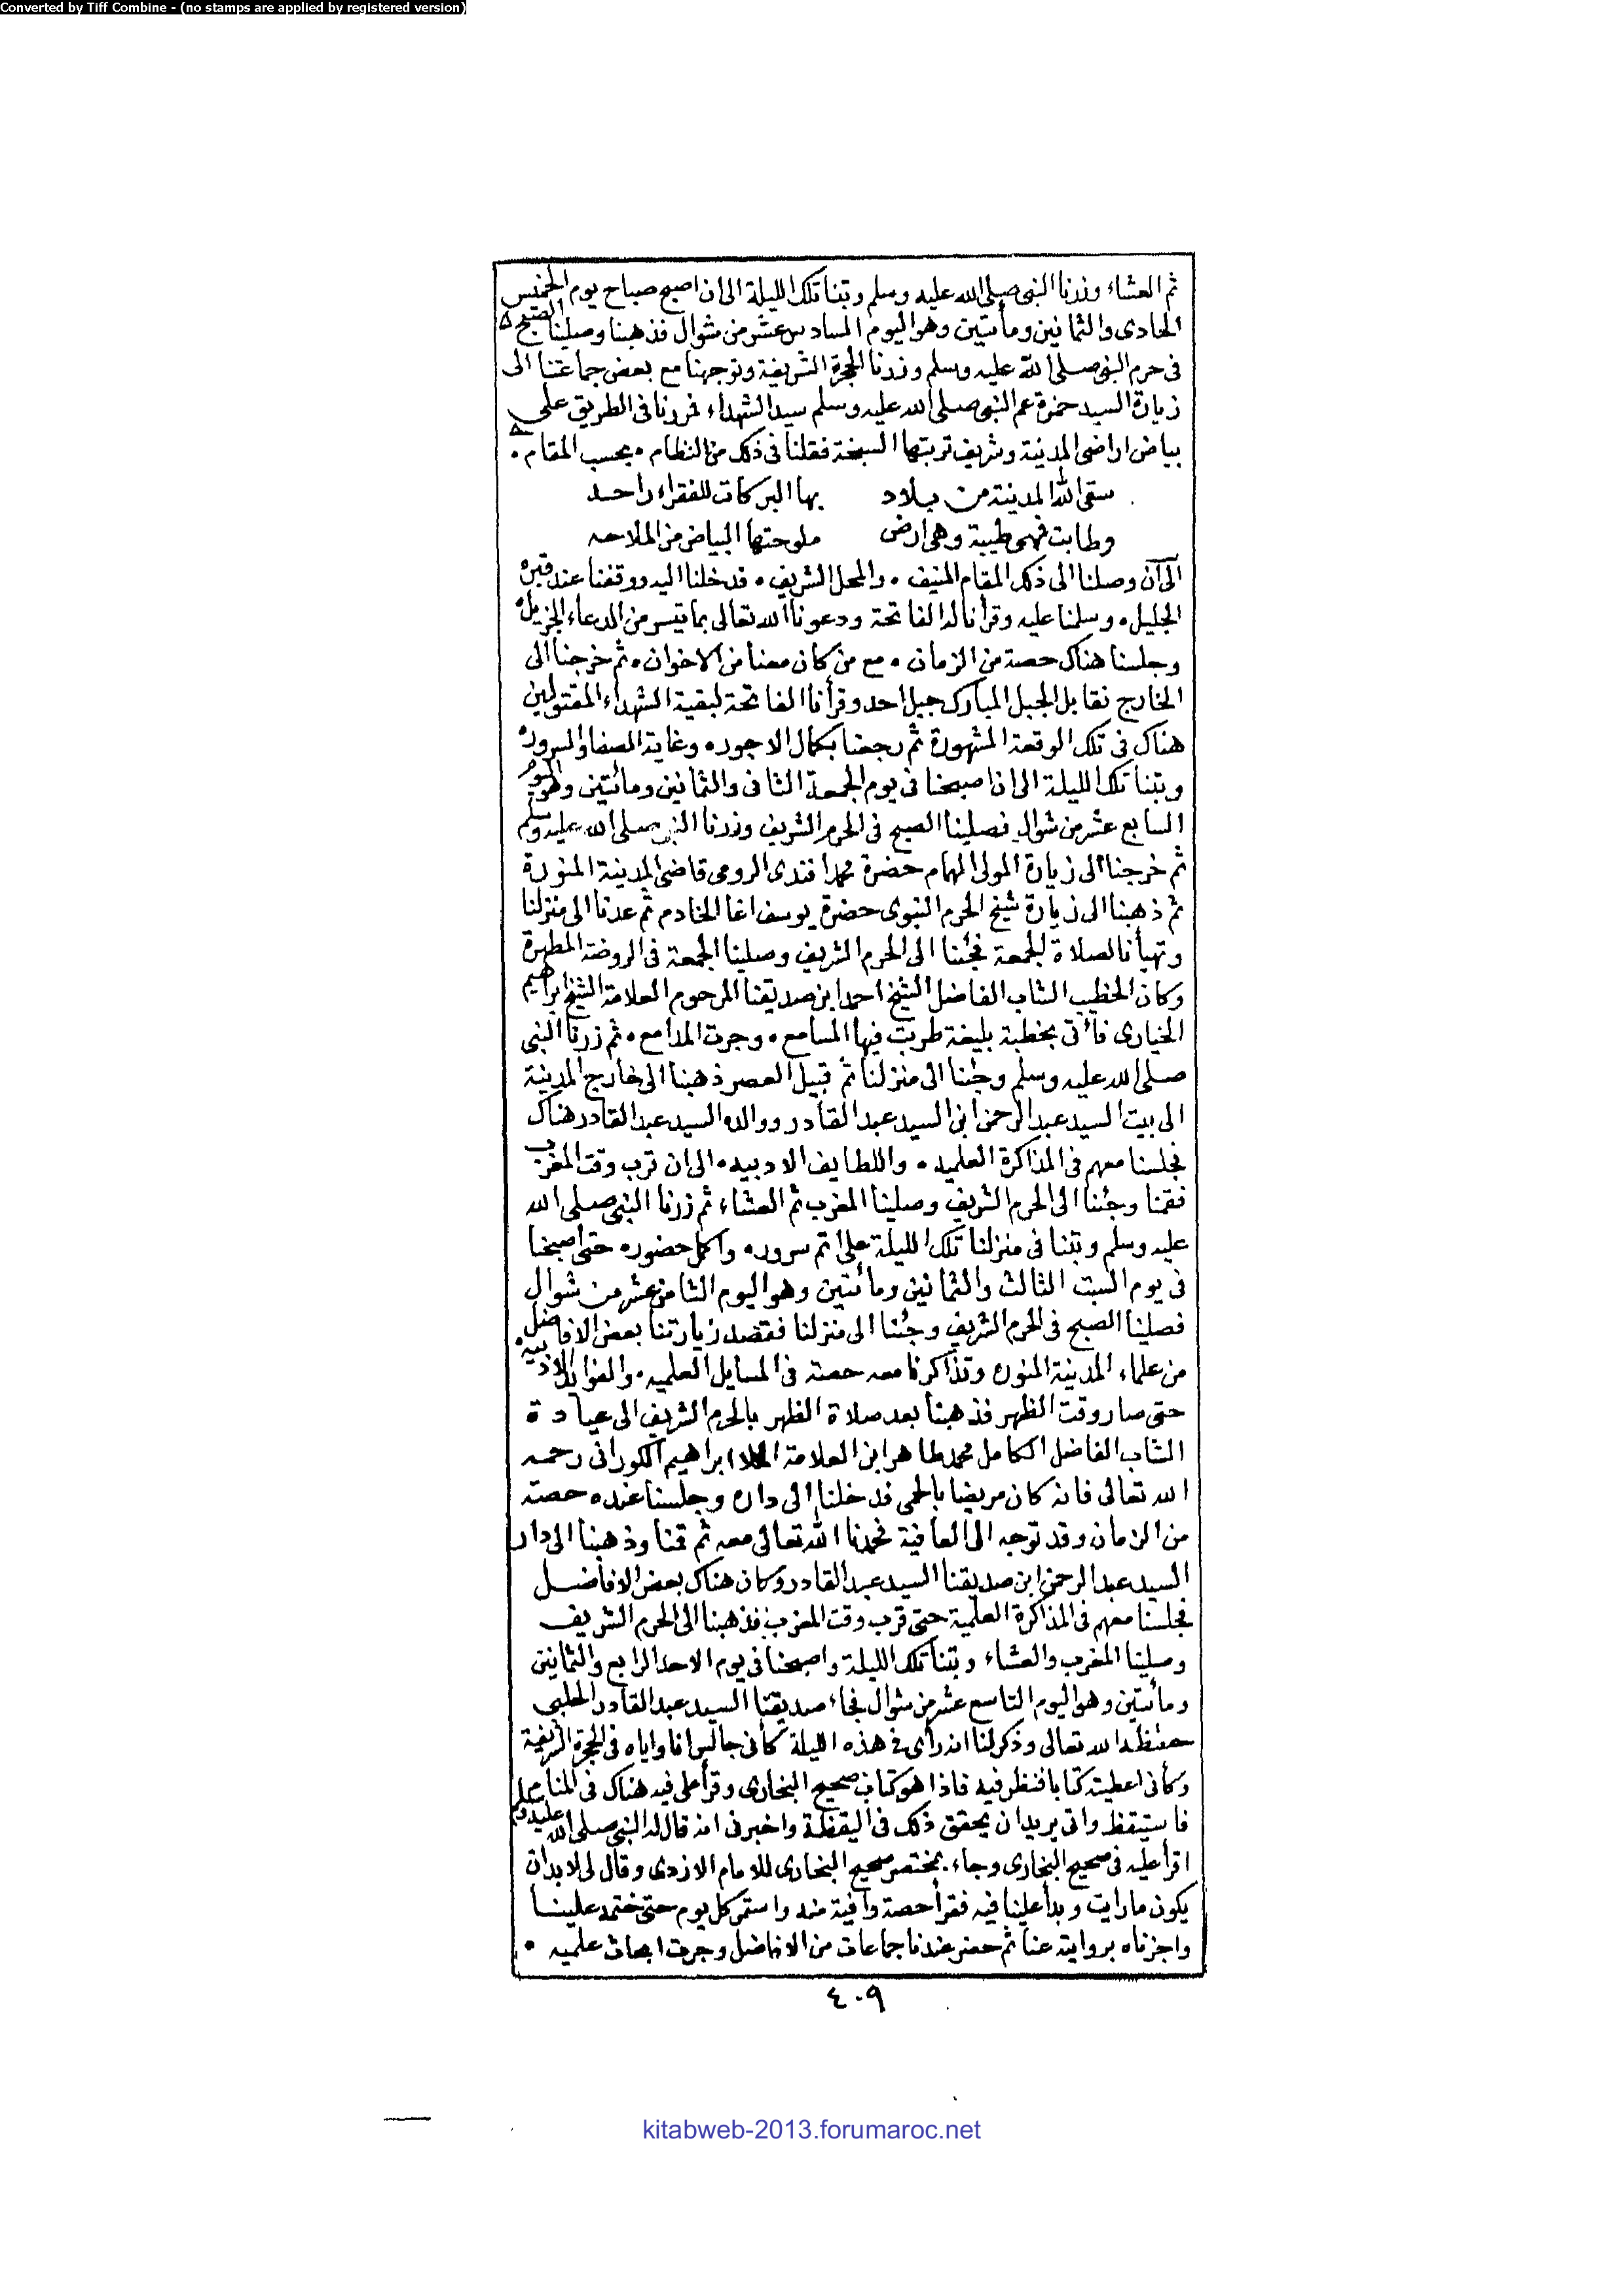 Converted by Tiff Combine - (no stamps are applied by registered version)
ثم العشاء وزرنا النبى صلى الله عليه وسلم وبتنا تلك الليلة الى ان اصبح صباح يوم الخميس
الحادى والثمانين ومأتين وهو اليوم السادس عشر من شوال فذهبنا وصلينا الصبح
فى حرم النبى صلى الله عليه وسلم وزرنا الحجرة الشريفة وتوجهنا مع بعض جماعتنا الى
زيارة السيد حمزة عم النبى صلى الله عليه وسلم سيد الشهداء فمررنا فى الطريق على
بياض اراضى المدينة وشريف تربتها السبخة فقلنا فى ذلك من النظام • بحسب المقام •
سقى الله المدينة من بلاد بها البركات للفقراء راحه
وطابت فهى طيبة وهى ارض ملوحتها البياض من الملاحه
الى آن وصلنا الى ذلك المقام المنيف • والمحل الشريف • فدخلنا اليه ووقفنا عند قبره
الجليل • وسلمنا عليه وقرأنا له الفاتحة ودعونا الله تعالى بما تيسر من الدعاء الجزيل •
وجلسنا هناك حصة من الزمان • مع من كان معنا من الاخوان • ثم خرجنا الى
الخارج نقابل الجبل المبارك جبل احد وقرأنا الفاتحة لبقية الشهداء المقتولين
هناك فى تلك الوقعة المشهورة ثم رجعنا بكمال الاجور • وغاية الصفا والسرور •
وبتنا تلك الليلة الى ان اصبحنا فى يوم الجمعة الثانى والثمانين ومائتين وهو اليوم
السابع عشر من شوال فصلينا الصبح فى الحرم الشريف وزرنا النبى صلى الله عليه وسلم
ثم خرجنا الى زيارة المولى الهمام حضرة محمد افندى الرومى قاضى المدينة المنورة
ثم ذهبنا الى زيارة شيخ الحرم النبوى حضرة يوسف اغا الخادم ثم عدنا الى منزلنا
وتهيأنا لصلاة الجمعة فجئنا الى الحرم الشريف وصلينا الجمعة فى الروضة المطهرة
وكان الخطيب الشاب الفاضل الشيخ احمد ابن صديقنا المرحوم العلامة الشيخ ابراهيم
الخيارى فأتى بخطبة بليغة طربت فيها المسامع • وجرت المدامع • ثم زرنا النبى
صلى الله عليه وسلم وجئنا الى منزلنا ثم قبيل العصر ذهبنا الى خارج المدينة
الى بيت السيد عبد الرحمن ابن السيد عبد القادر ووالده السيد عبد القادر هناك
فجلسنا معهم فى المذاكرة العلميه • واللطايف الادبيه • الى ان قرب وقت المغرب
فقمنا وجئنا الى الحرم الشريف وصلينا المغرب ثم العشاء ثم زرنا النبى صلى الله
عليه وسلم وبتنا فى منزلنا تلك الليلة على اتم سرور • واكمل حضور • حتى اصبحنا
فى يوم السبت الثالث والثمانين ومائتين وهو اليوم الثامن عشر من شوال
فصلينا الصبح فى الحرم الشريف وجئنا الى منزلنا فقصد زيارتنا بعض الافاضل
من علماء المدينة المنوره وتذاكرنا معه حصة فى المسايل العلميه • والفوائد الادبيه •
حتى صار وقت الظهر فذهبنا بعد صلاة الظهر بالحرم الشريف الى عيادة
الشاب الفاضل الكامل محمد طاهر ابن العلامة الملا ابراهيم الكورانى رحمه
الله تعالى فانه كان مريضا بالحمى فدخلنا الى داره وجلسنا عنده حصة
من الزمان وقد توجه الى العافية فحمدنا الله تعالى معه ثم قمنا وذهبنا الى دار
السيد عبد الرحمن ابن صديقنا السيد عبد القادر وكان هناك بعض الافاضل
فجلسنا معهم فى المذاكرة العلمية حتى قرب وقت المغرب فذهبنا الى الحرم الشريف
وصلينا المغرب والعشاء وبتنا تلك الليلة واصبحنا فى يوم الاحد الرابع والثمانين
ومأتين وهو اليوم التاسع عشر من شوال فجاء صديقنا السيد عبد القادر الحلبى
حفظه الله تعالى وذكر لنا انه رأى فى هذه الليلة كأنى جالس انا واياه فى الحجرة الشريفة
وكأنى اعطيته كتابا فنظر فيه فاذا هو كتاب صحيح البخارى وقرأ على فيه هناك فى المنام
فاستيقظ واتى يريد ان يحقق ذلك فى اليقظة واخبرنى انه قال له النبى صلى الله عليه وسلم
اقرأ عليه فى صحيح البخارى وجاء بمختصر صحيح البخارى للامام الازدى وقال لى لا بد ان
يكون ما رايت وبدأ علينا فيه فقرأ حصة وافية منه واستمر كل يوم حتى ختمه علينا
واجزناه بروايته عنا ثم حضر عندنا جماعات من الافاضل وجرت ابحاث علميه •
٤٠٩
kitabweb-2013.forumaroc.net